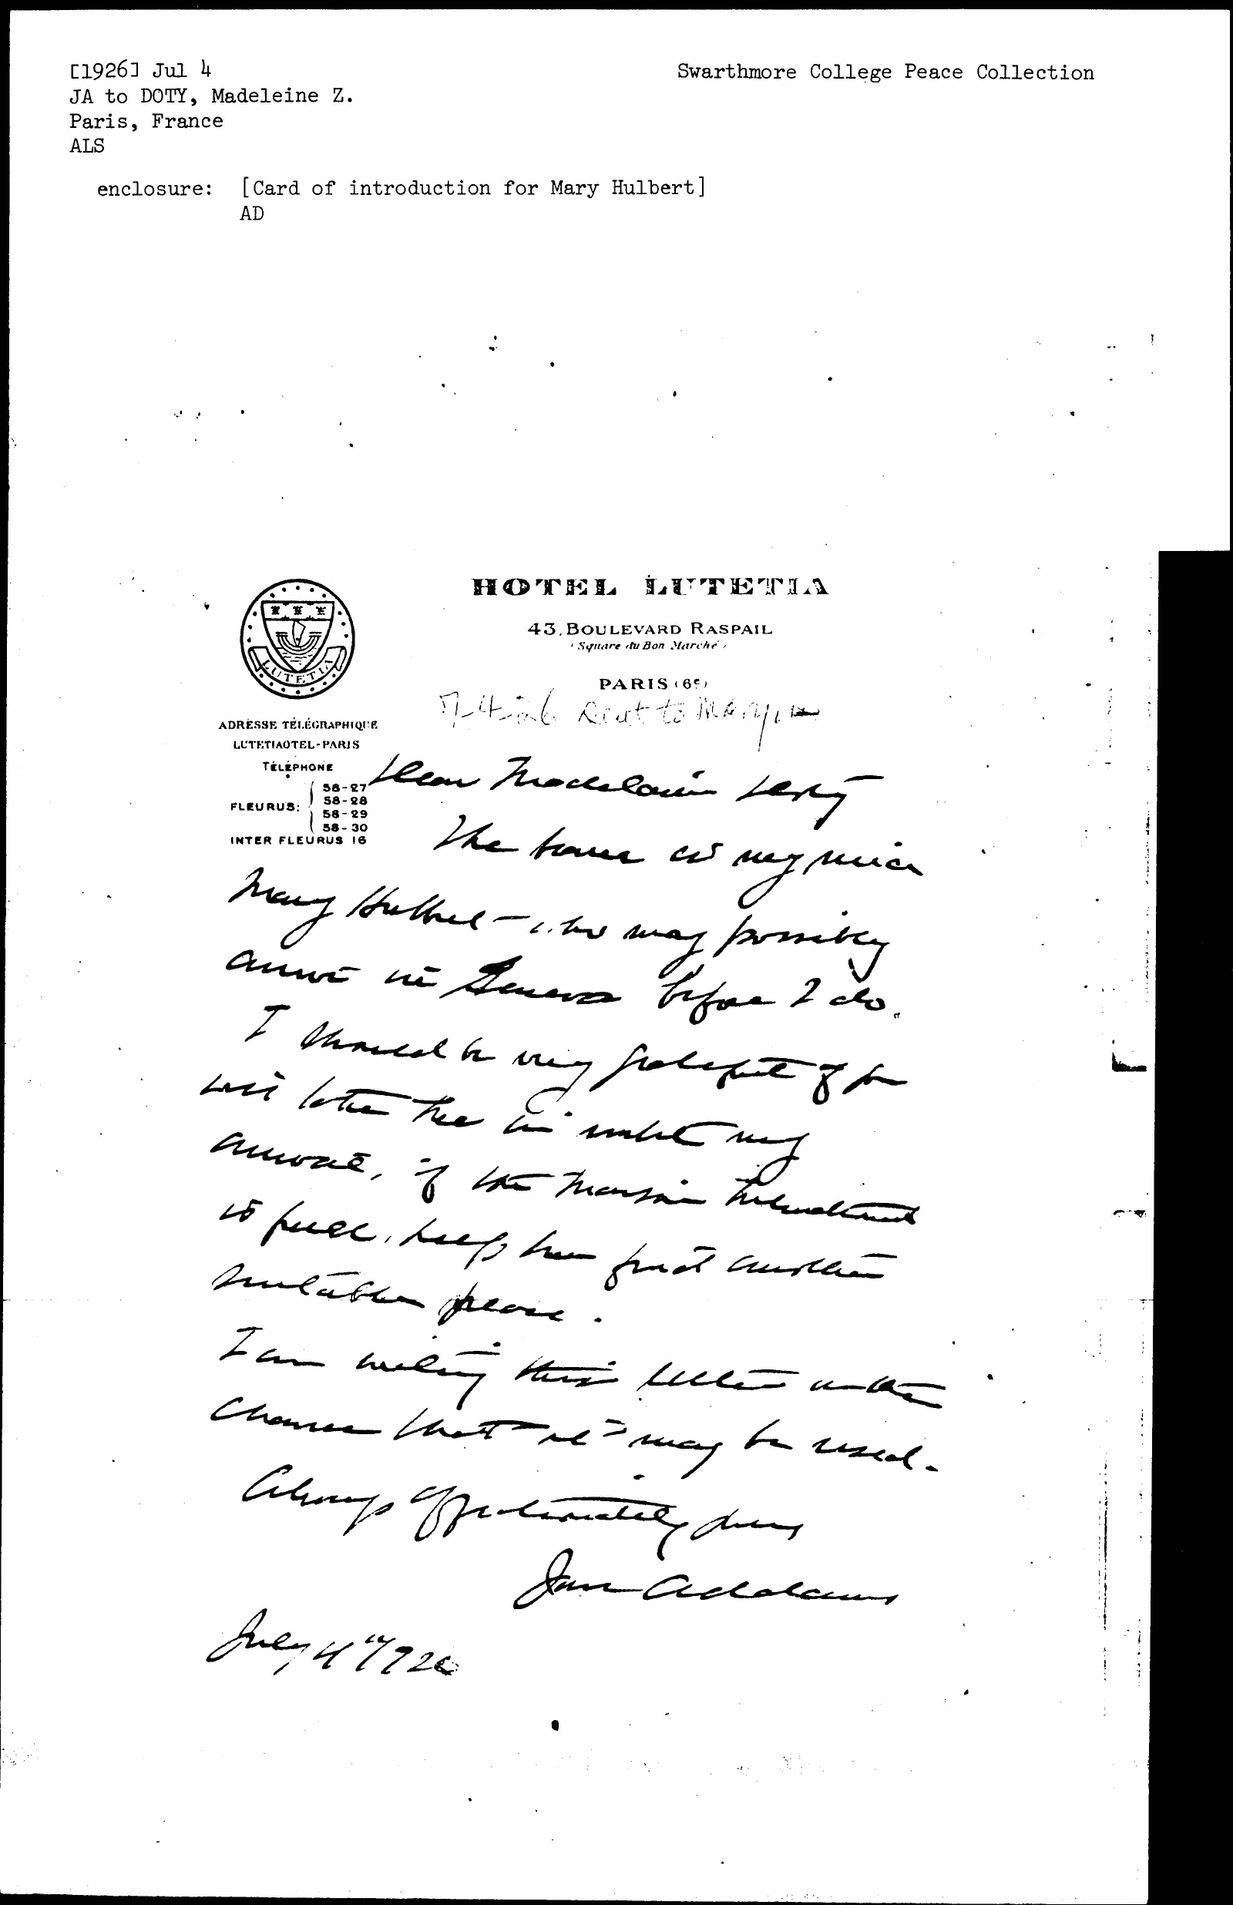 [1926] Jul 4
Swarthmore College Peace Collection
JA to DOTY, Madeleine Z.
Paris, France
ALS
enclosure: [Card of introduction for Mary Hulbert]
AD
HOTEL LUTETIA
43, BOULEVARD RASPAIL
(Square du Bon Marché)
PARIS (6e)
LUTETIA
7-4-26 Sent to Mary
ADRESSE TÉLÉGRAPHIQUE
LUTETIAOTEL-PARIS
TÉLÉPHONE
FLEURUS:
58-27
58-28
58-29
58-30
INTER FLEURUS 16
Dear Madeleine Doty
The bearer is my niece
Mary Hulbert - who may possibly
arrive in Geneva before I do.
I should be very grateful if you
will take her in until my
arrival, if the Maison Internationale
is full, help her find another
suitable place.
I am writing this letter on the
chance that it may be used.
Always affectionately yours
Jane Addams
July 4" 1926